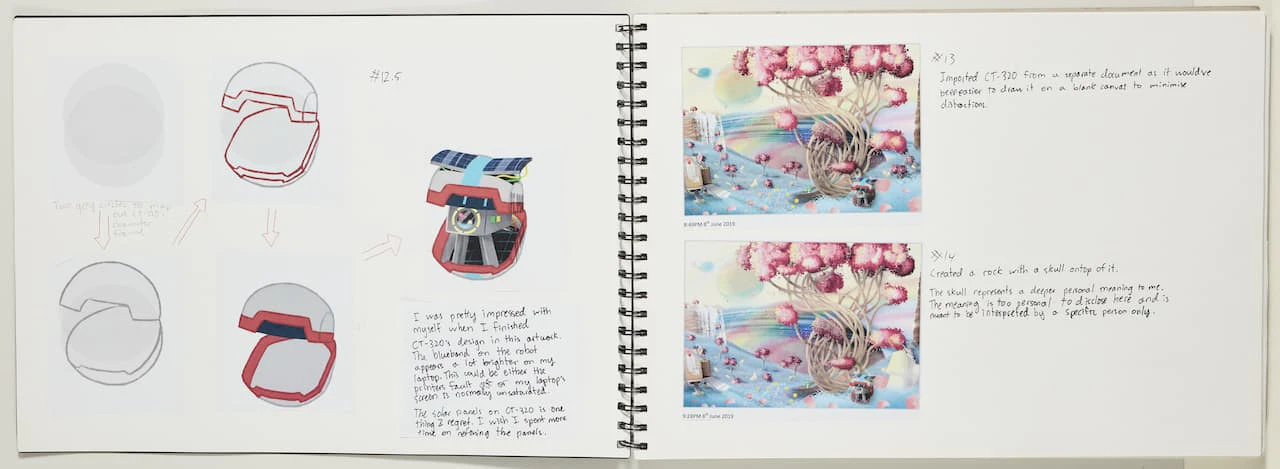 #12.5
Two grey circles to map
out CT-320's
character
frame
I was pretty impressed with
myself when I finished
CT-320's design in this artwork.
The blueband on the robot
appears a lot brighter on my
laptop. This could be either the
printers fault or my laptop's
screen is normally unsaturated.
The solar panels on CT-320 is one
thing I regret. I wish I spent more
time on refining the panels.
#13
Imported CT-320 from a separate document as it would've
been easier to draw it on a blank canvas to minimise
distractions.
8:49PM 8th June 2019
#14
Created a rock with a skull ontop of it.
The skull represents a deeper personal meaning to me.
The meaning is too personal to disclose here and is
meant to be interpreted by a specific person only.
9:28PM 8th June 2019